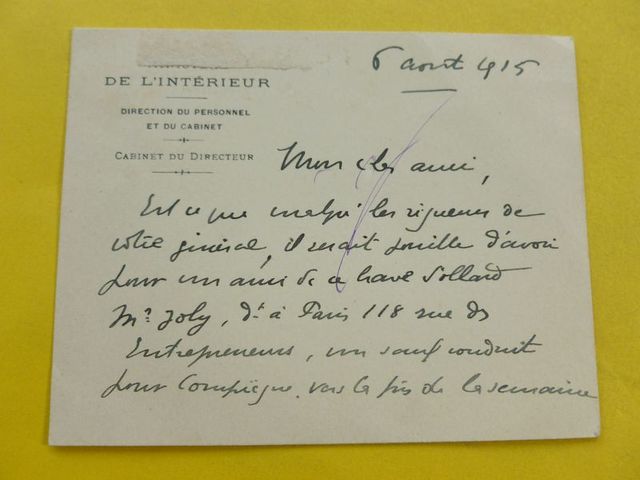 DE L'INTÉRIEUR
DIRECTION DU PERSONNEL
ET DU CABINET
CABINET DU DIRECTEUR
6 août 1915
Mon cher ami,
Est ce que malgré les rigueurs de
votre général, il serait possible d'avoir
pour un ami de ce brave Sollard
Mr. Joly, dt. à Paris 118 rue des
Entrepreneurs, un sauf conduit
pour Compiègne vers la fin de la semaine